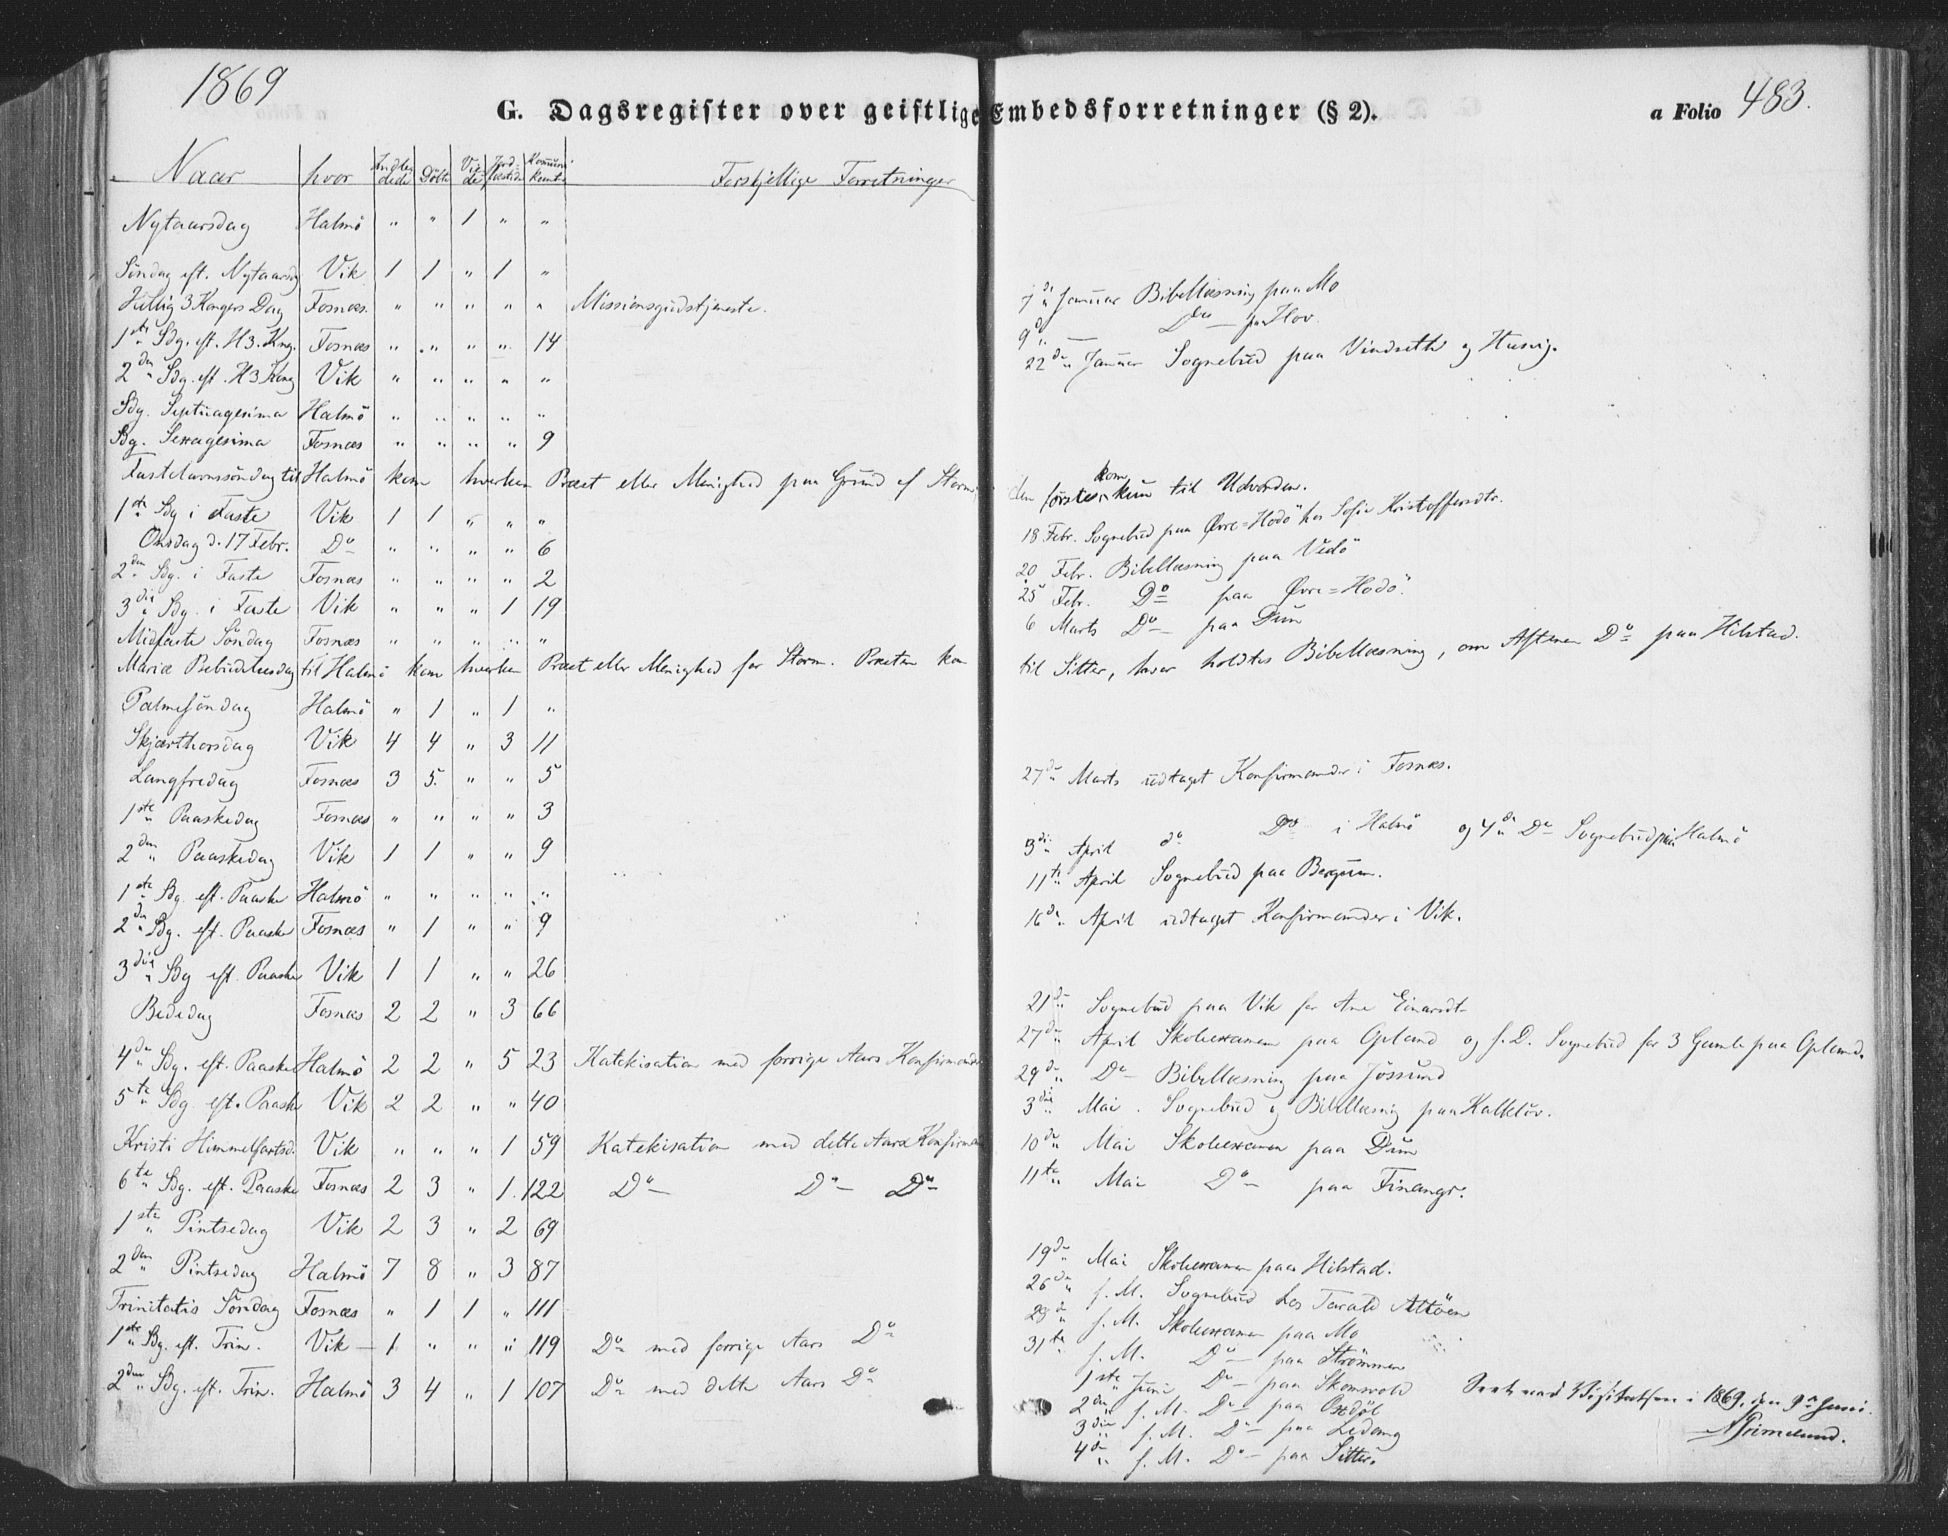 1869
G. Dagsregister over geistlige Embedsforretninger (§ 2).
a Folio 483.
Naar hvor Indledede Døbte Viede Jordfæstede Kommunikanter Forskjellige Forretninger
Nytaarsdag Halmö " " 1 " "
Söndag eft. Nytaarsdg Vik 1 1 " 1 "
Hellig 3 Kongers Dag Fosnæs " " " " " Missionsgudstjeneste.
1ste Sdg. eft. H3. Kng. Fosnæs " " " " 14
2den Sdg. eft. H3 Kong Vik " " " " "
Sdg. Septuagesima Halmö " " " " "
Sdg. Sexagesima Fosnæs " " " " 9
Fastelavnssöndag til Halmö kom hverken Præst eller Menighed paa Grund af Storm,
1ste Sdg i Faste Vik 1 1 " " "
Onsdag d. 17 Febr. Do " " " " 6
2den Sdg. i Faste Fosnæs " " " " 2
3die Sdg. i Faste Vik " " " 1 19
Midfaste Söndag Fosnæs " " " " "
Mariæ Bebudelsesdag til Halmö kom hverken Præst eller Menighed for Storm. Præsten kom
Palmesöndag Halmö " 1 " 1 "
Skjærthorsdag Vik 4 4 " 3 11
Langfredag Fosnæs 3 5. " " 5
1ste Paaskedag Fosnæs " " " " 3
2den Paaskedag Vik 1 1 " " 9
1ste Sdg. eft. Paaske Halmö " " " " "
2den Sdg. eft. Paaske Fosnæs " 1 " " 9
3die Sdg eft. Paaske Vik 1 1 " " 26
Bededag Fosnæs 2 2 " 3 66
4de Sdg. eft. Paaske Halmö 2 2 " 5 23 Katekisation med forrige Aars Konfirmande
5te Sdg eft. Paaske Vik 2 2 " " 40
Kristi Himmelfartsd. Vik " " " 1 59 Katekisation med dette Aars Konfirman
6te Sdg. eft. Paaske Fosnæs 2 3 " 1. 122 Do Do Do
1ste Pintsedag Vik 2 3 " 2 69
2den Pintsedag Halmö 7 8 " 3 87
Trinitatis Söndag Fosnæs " 1 1 " 111
1ste Sdg. eft. Trin. Vik 1 " " " 119 Do med forrige Aars Do
2den Sdg. eft. Trin. Halmö 3 4 " 1 107 Do med dette Aars Do
7de Januar Bibellæsning paa Mo
9de — Do — paa Hov.
22de Januar Sognebud paa Vindsetth og Husvig.
den förste kom kun til Udvorden.
18 Febr. Sognebud paa Øvre=Hodö hos Sofie Kristoffersdtr.
20 Febr. Bibellæsning paa Vedö
25 Febr. Do paa Øvre=Hodö.
6 Marts Do — paa Dun
til Sitter, hvor holdtes Bibellæsning, om Aftenen Do paa Hilstad.
27de Marts udtaget Konfirmander i Fosnæs.
3die April do Do i Halmö og 4de Do Sognebud paa Halmö
11te April Sognebud paa Bergum.
16de April udtaget Konfirmander i Vik.
21de Sognebud paa Vik for Ane Einarsdt
27de April Skoleexamen paa Opland og s. D. Sognebud for 3 Gamle paa Opland.
29de Do Bibellæsning paa Jössund
3die Mai. Sognebud og Bibellæsnig paa Kalklöv.
10de Mai Skoleexamen paa Dun
11te Mai Do — paa Finangr.
19de Mai Skoleexamen paa Hilstad.
26de s. M. Sognebud hos Tarald Altöen
28de s. M. Skoleexamen paa Mo
31te s. M. Do — paa Strömmen
1ste Juni Do — paa Skomsvold
2den s. M. Do — paa Osdöl
3die s. M. Do — paa Ledang
4de s. M. Do — paa Sitter.
Seet ved Visitatsen i 1869, den 9de Juni.
Grimelund.